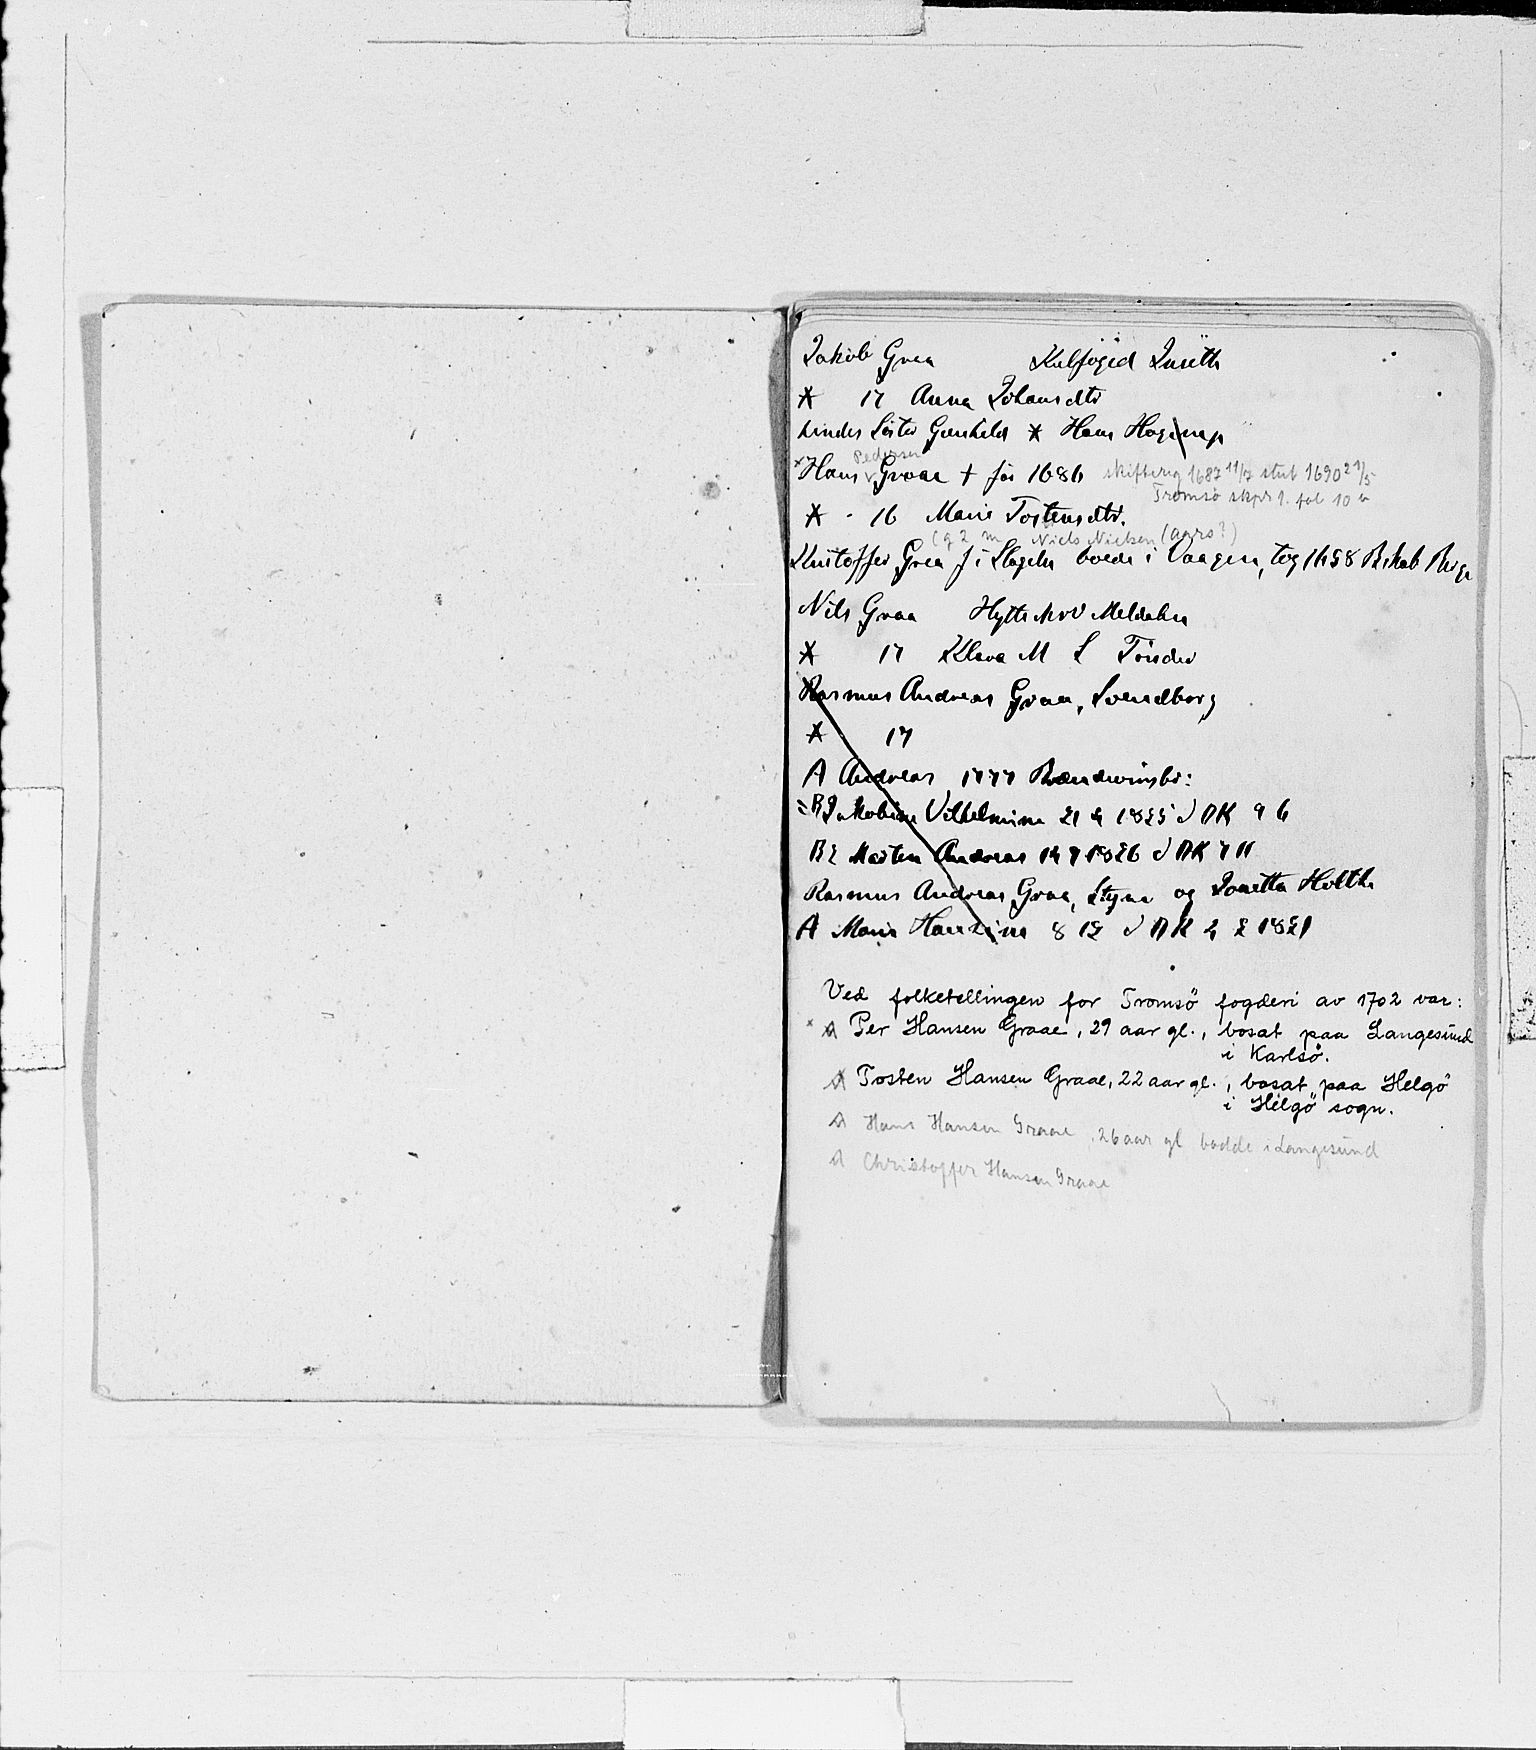 Jakob Graa Kulfoged Inseth
* 17 Anna Johansdtr
hindes Søster Gunhild * Hans Hog
x) Hans Pedersen Graae † før 1686 skiftereg 1687 11/7 slut 1690 21/5
Tromsö skpr 1. fol 10 b
* 16 Marie Tostensdtr.
(g 2 m Niels Nielsen (aars?)
Kristoffer Graa f i Slagelse boede i Vaagen, tog 1658 Biskab
Nils Graa Hytteskriv Meldalen
* 17 Klara M S Tönder
Rasmus Andreas Graa, Svendborg
* 17
A Andreas 1777 Brændevinsbr:
= B Jakobine Vilhelmine 21 4 1825 d DK 9 6
B2 Morten Andreas 14 7 1826 d DK 7 11
Rasmus Andreas Graa, Styrm og Jonetta Holthe
A Marie Hansine 8 12 d DK 4 2 1821
Ved folketellingen for Tromsö fogderi av 1702 var:
x A Per Hansen Graae, 29 aar gl., bosat paa Langesund
i Karlsö.
A Tosten Hansen Graae, 22 aar gl., bosat paa Helgö
i Helgö sogn.
A Hans Hansen Graae, 26 aar gl bodde i Langesund
A Christoffer Hansen Graae